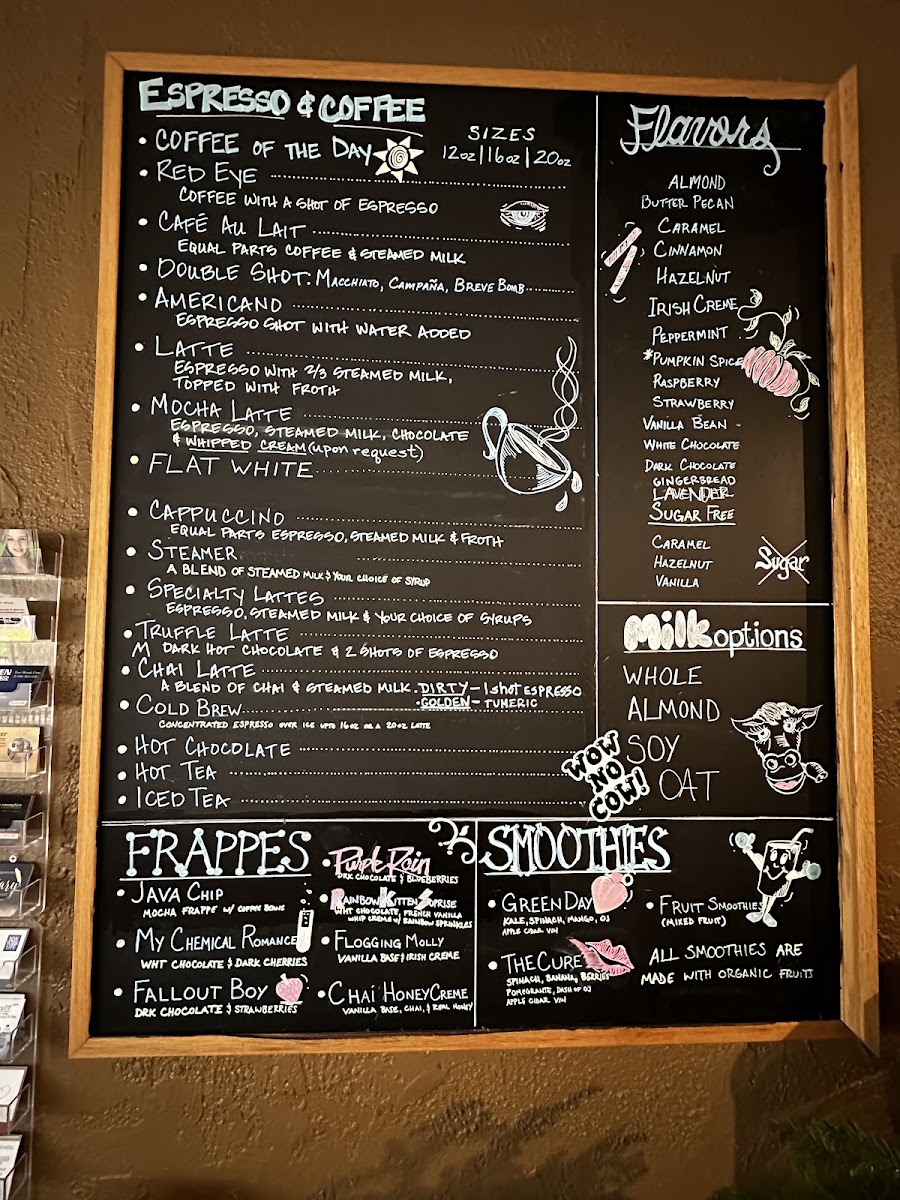 ESPRESSO & COFFEE
SIZES
12oz | 16oz | 20oz
• COFFEE OF THE DAY
• RED EYE
COFFEE WITH A SHOT OF ESPRESSO
• CAFÉ AU LAIT
EQUAL PARTS COFFEE & STEAMED MILK
• DOUBLE SHOT: MACCHIATO, CAMPAÑA, BREVE BOMB
• AMERICANO
ESPRESSO SHOT WITH WATER ADDED
• LATTE
ESPRESSO WITH 2/3 STEAMED MILK,
TOPPED WITH FROTH
• MOCHA LATTE
ESPRESSO, STEAMED MILK, CHOCOLATE
& WHIPPED CREAM (upon request)
• FLAT WHITE
• CAPPUCCINO
EQUAL PARTS ESPRESSO, STEAMED MILK & FROTH
• STEAMER
A BLEND OF STEAMED MILK & YOUR CHOICE OF SYRUP
• SPECIALTY LATTES
ESPRESSO, STEAMED MILK & YOUR CHOICE OF SYRUPS
• TRUFFLE LATTE
M DARK HOT CHOCOLATE & 2 SHOTS OF ESPRESSO
• CHAI LATTE
A BLEND OF CHAI & STEAMED MILK. • DIRTY - 1 shot ESPRESSO
• GOLDEN - TUMERIC
• COLD BREW
CONCENTRATED ESPRESSO OVER ICE UPTO 16oz OR A 20oz LATTE
• HOT CHOCOLATE
• HOT TEA
• ICED TEA
Flavors
ALMOND
BUTTER PECAN
CARAMEL
CINNAMON
HAZELNUT
IRISH CREME
PEPPERMINT
*PUMPKIN SPICE
RASPBERRY
STRAWBERRY
VANILLA BEAN
WHITE CHOCOLATE
DARK CHOCOLATE
GINGERBREAD
LAVENDER
SUGAR FREE
CARAMEL
HAZELNUT
VANILLA
Sugar
Milk options
WHOLE
ALMOND
SOY
OAT
WOW
NO
COW!
FRAPPES
• JAVA CHIP
MOCHA FRAPPE W/ COFFEE BEANS
• MY CHEMICAL ROMANCE
WHT CHOCOLATE & DARK CHERRIES
• FALLOUT BOY
DRK CHOCOLATE & STRAWBERRIES
• Purple Rain
DRK CHOCOLATE & BLUEBERRIES
• RAINBOW KITTEN SURPRISE
WHT CHOCOLATE, FRENCH VANILLA
WHIP CREME W/ RAINBOW SPRINKLES
• FLOGGING MOLLY
VANILLA BASE & IRISH CREME
• CHAI HONEY CREME
VANILLA BASE, CHAI, & REAL HONEY
SMOOTHIES
• GREEN DAY
KALE, SPINACH, MANGO, OJ
APPLE CIDAR VIN
• THE CURE
SPINACH, BANANA, BERRIES
POMEGRANTE, DASH OF OJ
APPLE CIDAR VIN
• FRUIT SMOOTHIES
(MIXED FRUIT)
ALL SMOOTHIES ARE
MADE WITH ORGANIC FRUITS